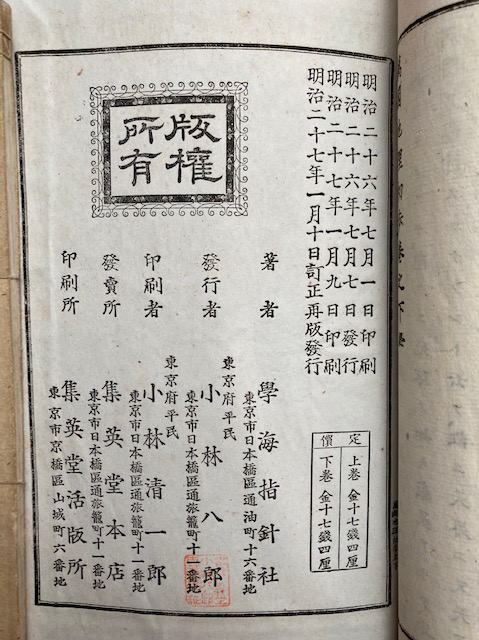 明治二十六年七月一日印刷
明治二十六年七月七日發行
明治二十七年一月九日印刷
明治二十七年一月十日訂正再版發行
版權
所有
定價
上卷 金十七錢四厘
下卷 金十七錢四厘
著者
東京市日本橋區通油町十六番地
學海指針社
發行者
東京府平民
小林八郎
東京市日本橋區通旅籠町十一番地
印刷者
東京府平民
小林清一郎
東京市日本橋區通旅籠町十一番地
發賣所
集英堂本店
東京市日本橋區通旅籠町十一番地
印刷所
集英堂活版所
東京市京橋區山城町六番地